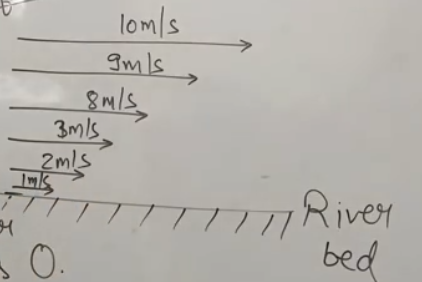 10m/s
9m/s
8m/s
3m/s
2m/s
1m/s
River
bed
O.